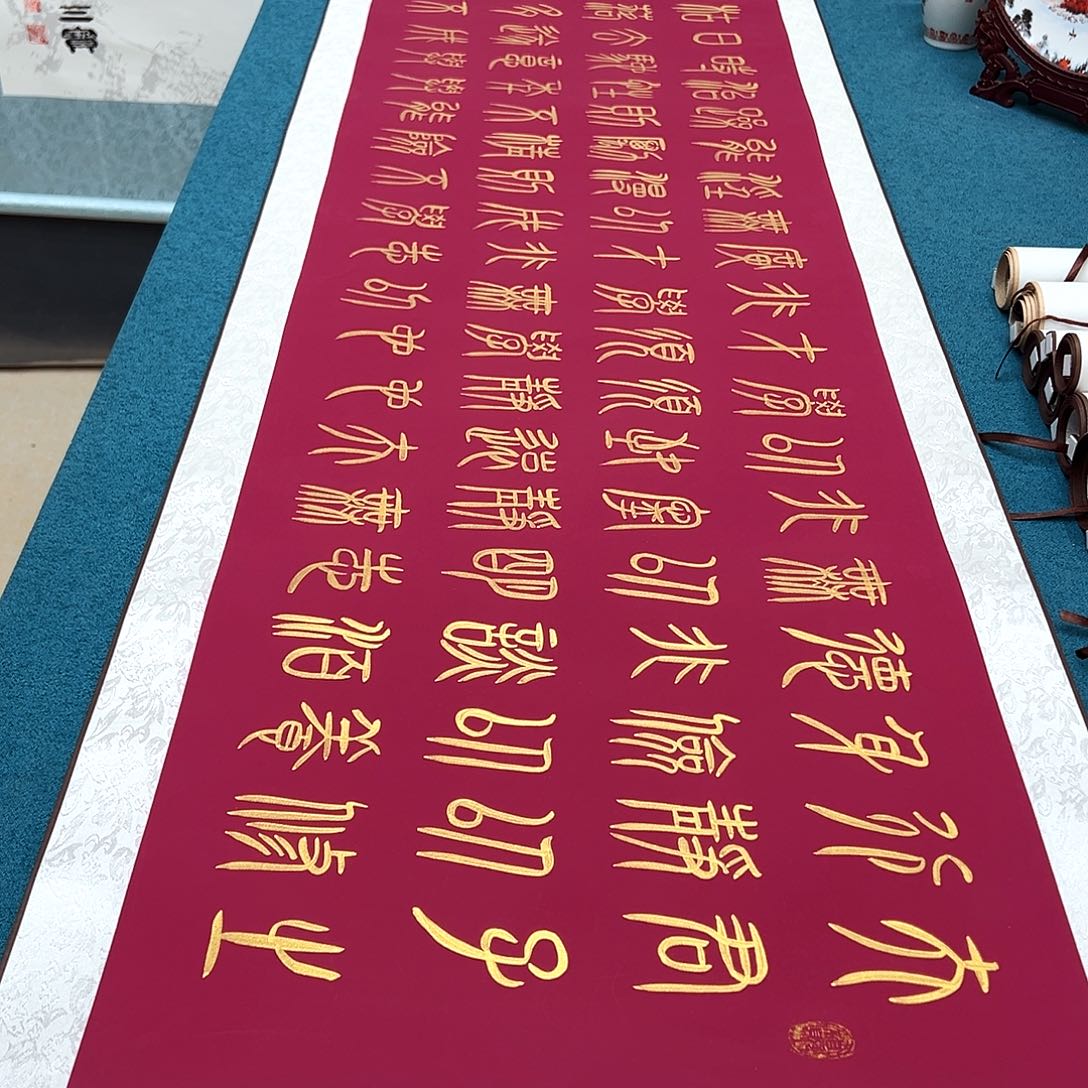 夫君子之
行靜以修
身儉以養
德非澹泊
無以明志
非寧靜無
以致遠夫
學須靜也
才須學也
非學無以
廣才非志
無以成學
淫慢則不
能勵精險
躁則不能
治性年與
時馳意與
日去遂成
枯落多不